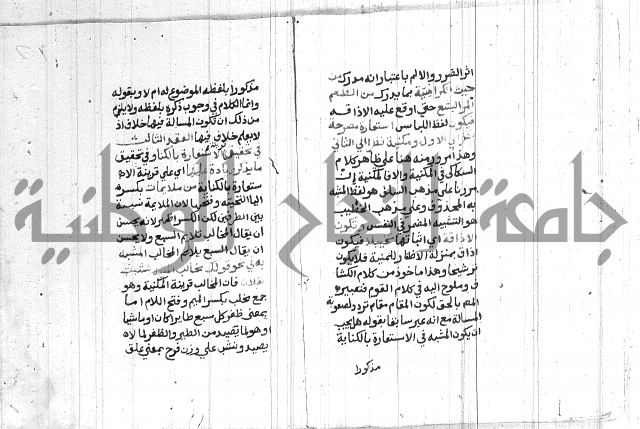 اثر الضرر والالم باعتبار انه مدرك من
حيث الكراهية بما يدرك من الطعم
المر البشع حتى اوقع عليه الاذاقة
فيكون لفظ اللباس استعارة مصرحة
نظرا الى الاول ومكنية نظرا الى الثاني
وهذا مرور منه هنا على ظاهر كلام
السكاكي في المكنية والا فالمكنية
مررنا على مذهب السلف هو لفظ المشبه
به المحذوف وعلى مذهب الخطيب
هو التشبيه المضمر في النفس وتكون
الاذاقة اي اثباتها تخييلا فيكون
اذاق بمنزلة الاظفار للمنية فلا يكون
ترشيحا وهذا ماخوذ من كلام الكشا
ف وملوح اليه في كلام القوم فتعبيره
بالحق لكون المقام مقام تردد لصعوبة
المسالة مع انه عبر سابقا بقوله هل يجب
ان يكون المشبه في الاستعارة بالكناية
مذكورا
مذكورا بلفظه الموضوع له ام لا وبقوله
وانما الكلام في وجوب ذكره بلفظه ولا يلزم
من ذلك ان تكون المسالة فيها خلاف اذ
لا يعلم خلاف فيها العقد الثالث
في تحقيق الاستعارة بالكناية وفي تحقيق
ما يذكر زيادة عليها اي على قرينة الا
ستعارة بالكناية من ملايمات بكسر
الياء التحتية وفتحها لان الملايمة نسبة
بين الطرفين لكن الكسر اشهر لانه يحسن
ان يقال المخالب تلايم السبع ولا يحسن
ان يقال السبع يلايم المخالب المشبه
به في نحو قولك مخالب المنية نشبت
بفلان فان المخالب قرينة المكنية وهو
جمع مخلب بكسر الميم وفتح اللام اما
بمعنى ظفر كل سبع طايرا كان او ماشيا
او هو لما يصيد من الطير والظفر لما لا
يصيد ونشب على وزن فرح بمعنى علق
جامعة النجاح الوطنية